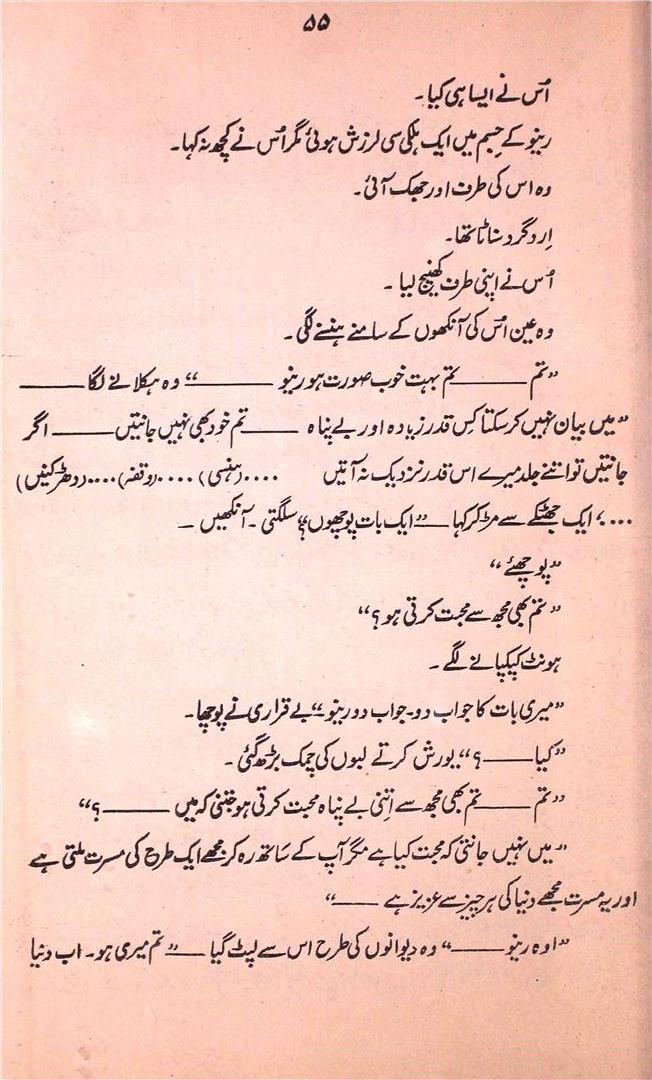 ۵۵
اُس نے ایسا ہی کیا۔
رینو کے جسم میں ایک ہلکی سی لرزش ہوئی مگر اُس نے کچھ نہ کہا۔
وہ اس کی طرف اور جھک آئی۔
اِرد گرد سناٹا تھا۔
اُس نے اپنی طرف کھینچ لیا ۔
وہ عین اُس کی آنکھوں کے سامنے ہنسنے لگی۔
”تم ——— تم بہت خوب صورت ہو رینو ———“ وہ ہکلانے لگا ———
”میں بیان نہیں کر سکتا کِس قدر زیادہ اور بے پناہ ——— تم خود بھی نہیں جانتیں ——— اگر
جانتیں تو اتنے جلد میرے اس قدر نزدیک نہ آتیں ....(ہنسی) ....(وقفہ)....(دھڑکنیں)
....‘، ایک جھٹکے سے مڑ کر کہا —— ”ایک بات پوچھوں؟“ سلگتی ۔ آنکھیں ۔
”پوچھئے“
”تم بھی مجھ سے محبت کرتی ہو؟“
ہونٹ کپکپانے لگے ۔
”میری بات کا جواب دو۔ جواب دو رینو“ بے قراری نے پوچھا۔
”کیا ——— ؟“ یورش کرتے لبوں کی چمک بڑھ گئی ۔
”تم ——— تم بھی مجھ سے اِتنی بے پناہ محبت کرتی ہو جتنی کہ میں ——— ؟“
”میں نہیں جانتی کہ محبت کیا ہے مگر آپ کے ساتھ رہ کر مجھے ایک طرح کی مسرت ملتی ہے
اور یہ مسرت مجھے دنیا کی ہر چیز سے عزیز ہے ———“
”اوہ رینو ———“ وہ دیوانوں کی طرح اس سے لپٹ گیا —— ”تم میری ہو۔ اب دنیا